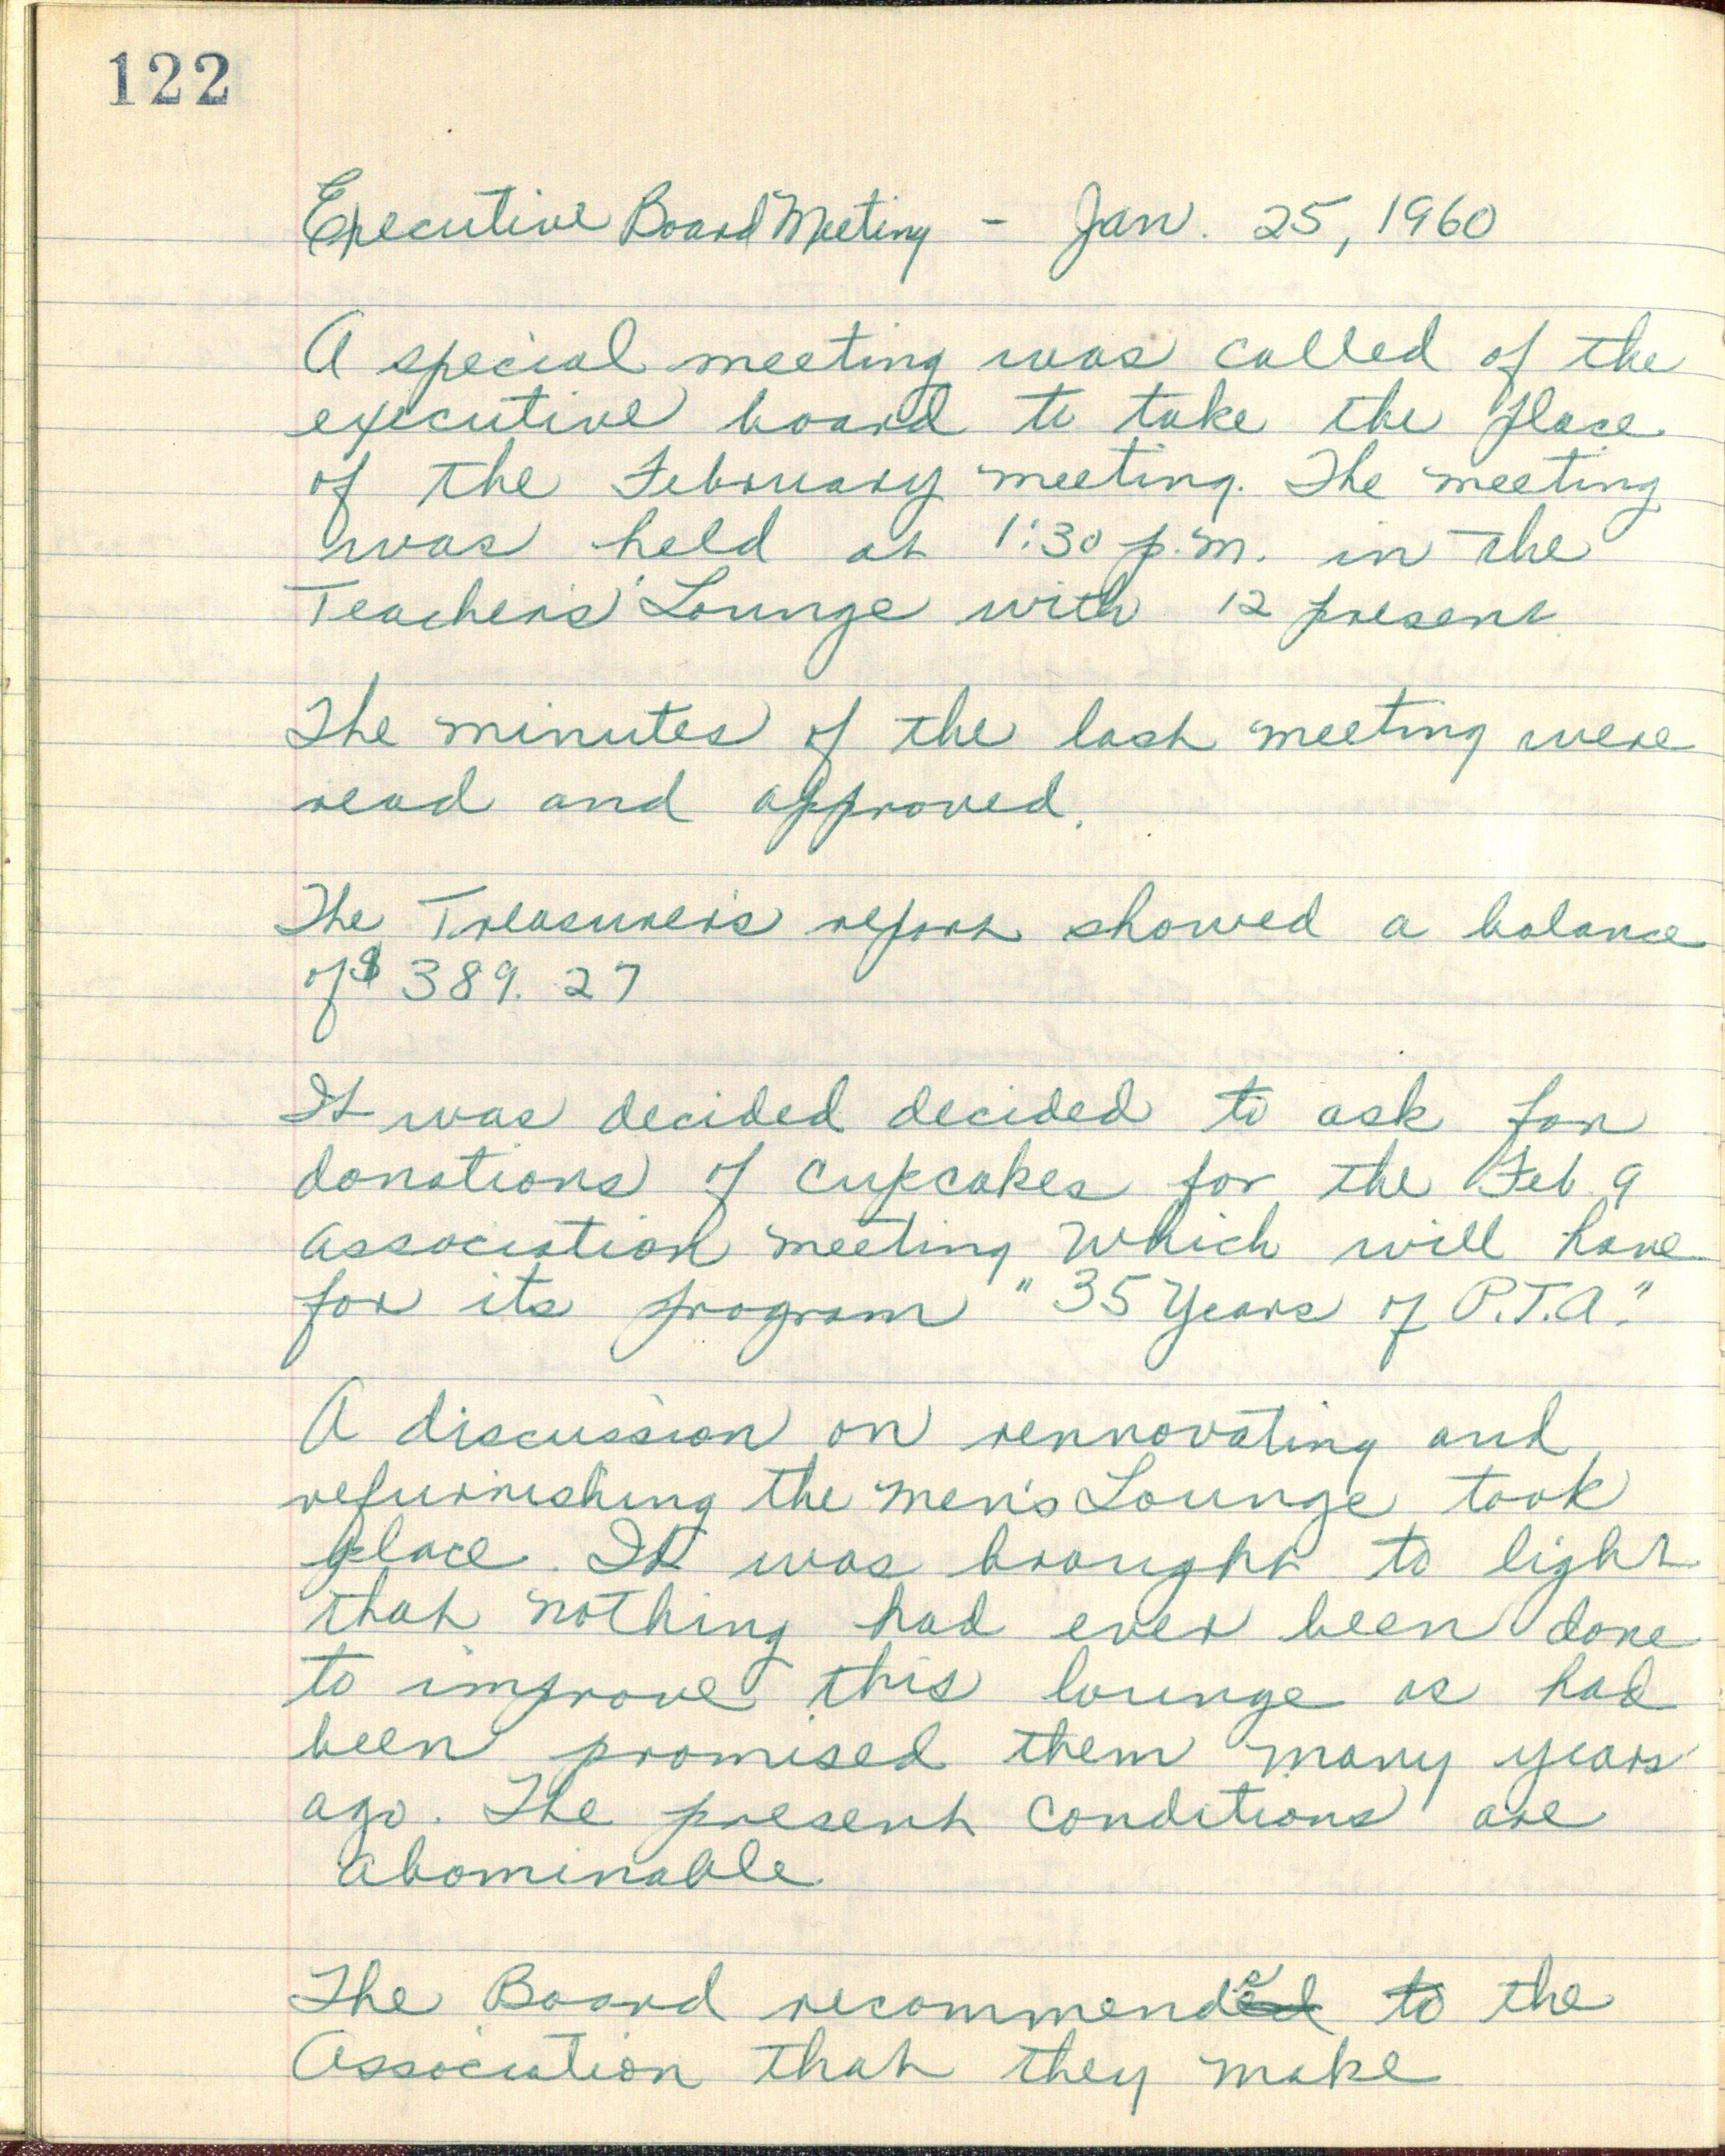 122
Executive Board Meeting - Jan. 25, 1960
A special meeting was called of the
executive board to take the place
of the February meeting. The meeting
was held at 1:30 p.m. in the
Teachers' Lounge with 12 present
The minutes of the last meeting were
read and approved.
The Treasurer's report showed a balance
of $389.27
It was decided decided to ask for
donations of cupcakes for the Feb. 9
association meeting which will have
for its program "35 Years of P.T.A."
A discussion on rennovating and
refurnishing the men's Lounge took
place. It was brought to light
that nothing had ever been done
to improve this lounge as had
been promised them many years
ago. The present conditions are
abominable.
The Board recommends to the
Association that they make